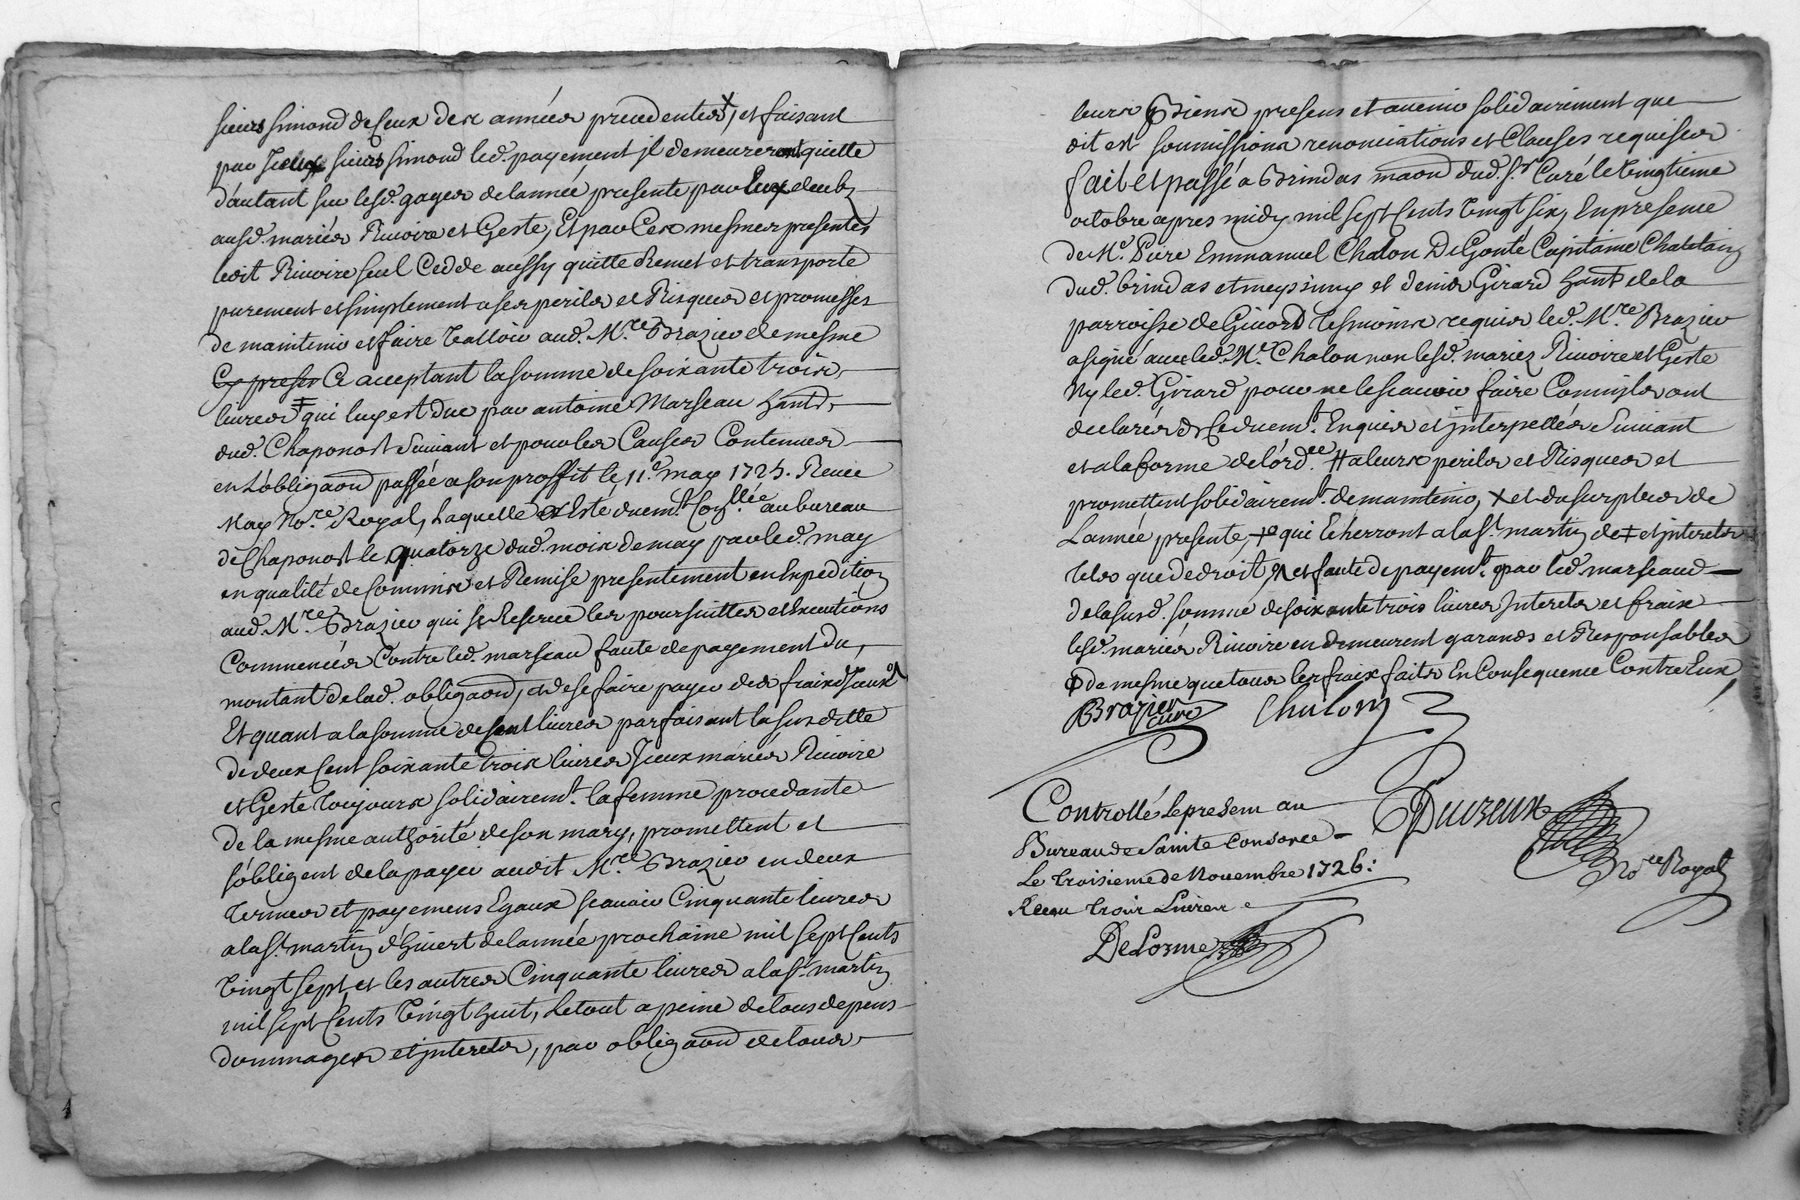 sieurs simond de Ceux des années precedentes X, et faisant
par Iceux sieurs simond led. payement il demeureront quitte
d'autant sur lesd. gages de l'année presente par Eux deubz
ausd. mariés Riuoire et Geste, Et par Ces mesmes presentes
ledit Riuoire seul Cedde aussy quitte Remet et transporte
purement et simplement a ses perils et Risques et promesses
de maintenir et faire Valloir aud. M.re Brazier de mesme
Cy presen Ce acceptant la somme de soixante trois
liures ‡ qui luy est due par antoine Marseau hant
dud. Chaponost Suiuant et pour les Causes Contenues
en L'obligaon passée a son proffit le 11.e may 1725. Receue
May No.re Royal, Laquelle a Esté duem.t Con.llée au bureau
de Chaponost le quatorze dud. mois de may par led. may
en qualité de Commis et Remise presentement en Expedition
aud. M.re Brazier qui se Reserue les poursuittes et Executions
Commencées Contre led. marseau faute de payement du
montant de lad. obligaon, et de se faire payer des fraix d'Iceux
Et quant a la somme de Cent liures parfaisant la susditte
de deux Cent soixante trois liures Iceux mariés Riuoire
et Geste toujours solidairem.t la femme procedante
de la mesme authorité de son mary, promettent et
s'obligent de la payer audit M.re Brazier en deux
termes et payemens Egaux scauoir Cinquante liures
a la S.t martin d'hiuert de l'année prochaine mil sept Cents
Vingt sept et les autres Cinquante liures a la S.t martin
mil sept Cents Vingt huit, Le tout a peine de tous depens
dommages et interets, par obligaon de tous
leurs Biens presens et auenir solidairement que
dit est soumissions renonciations et Clauses requises
fait et passé a Brindas maon dud. S.r Curé le Vingtieme
octobre apres midy mil sept Cents Vingt six, En presence
de M.e Piere Emmanuel Chalon De Gonté Capitaine Chatelain
dud. brindas et meyssimy et denis Girard hant de la
parroisse de Giuord tesmoins requis led. M.re Brazier
a signé auec led. M.e Chalon non lesd. mariez Riuoire et Geste
Ny led. Girard pour ne le scauoir faire Comm'ils ont
declarés de Ce duem.t Enquis et interpellés Suiuant
et a la forme de l'ord.ce # a leurs perils et Risques et
promettent solidairem.t de maintenir, X et du surplus de
L'année presente, qui Echerront a la S.t martin de ‡ et interets
tels que de droit et faute de payem.t par led. marseaud
de la susd. somme de soixante trois liures Interets et fraix
lesd. mariés Riuoire en demeurent garands et Responsables
de mesme que tous les fraix faits En Consequence Contre Eux
Brazier curé Chalon
Controllé le present au
Bureau de Sainte Consorce
Le troisieme de Nouembre 1726:
Receu trois Liures
Ducreux
No.re Royal
DeLorme